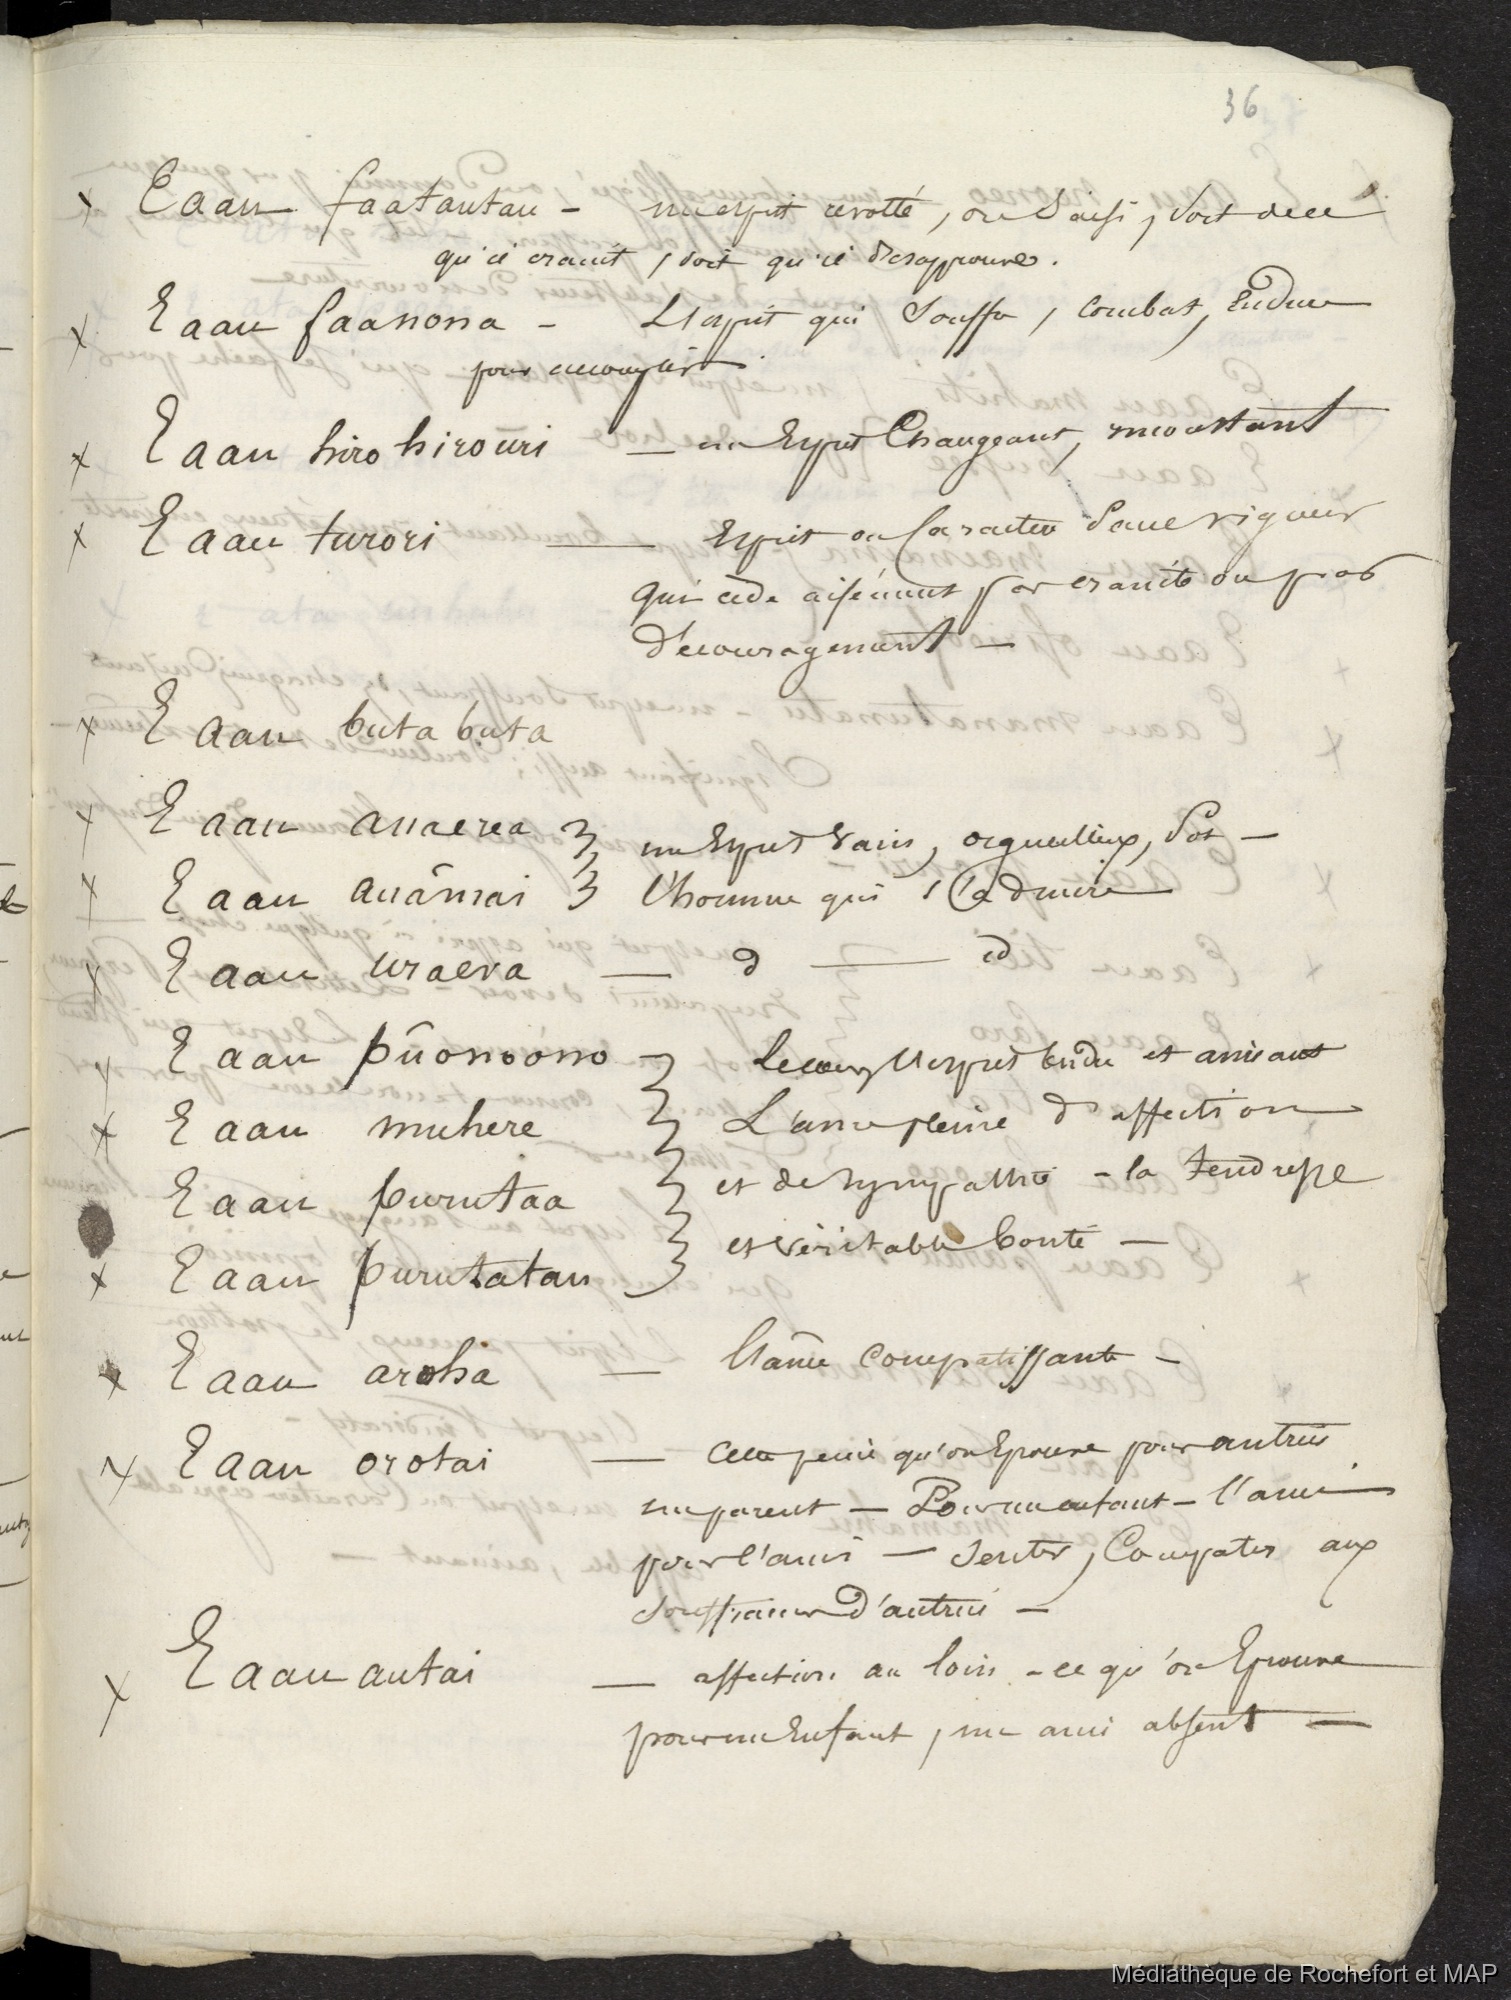 36
x E aau faatautau - un esprit révolté, ou saisi, soit de ce
qu'il craint, soit qu'il désapprouve.
x E aau faanona - L'esprit qui souffre, combat, endure
pour accomplir.
x E aau hiro hirouri — un Esprit Changeant, inconstant
x E aau turori — Esprit ou Caractère sans vigueur
qui cède aisément par crainte ou par
découragement —
x E aau buta buta
x E aau auaerea } un Esprit vain, orgueilleux, sot —
x E aau auâmai } l'homme qui s'admire
x E aau uraeva — d — id
x E aau pûonoóno } Le cœur, l'esprit tendre et aimant
x E aau muhere } L'ame pleine d'affection
E aau purutaa } et de sympathie - la tendresse
x E aau purutatau } et véritable bonté —
x E aau aroha — l'âme compatissante -
x E aau orotai — Cette peine qu'on Eprouve pour autrui
un parent — Pour un enfant - l'ami
pour l'ami — sentir, Compatir aux
souffrances d'autrui —
x E aau autai — affection au loin - ce qu'on Eprouve
pour un Enfant, un ami absent —
Médiathèque de Rochefort et MAP